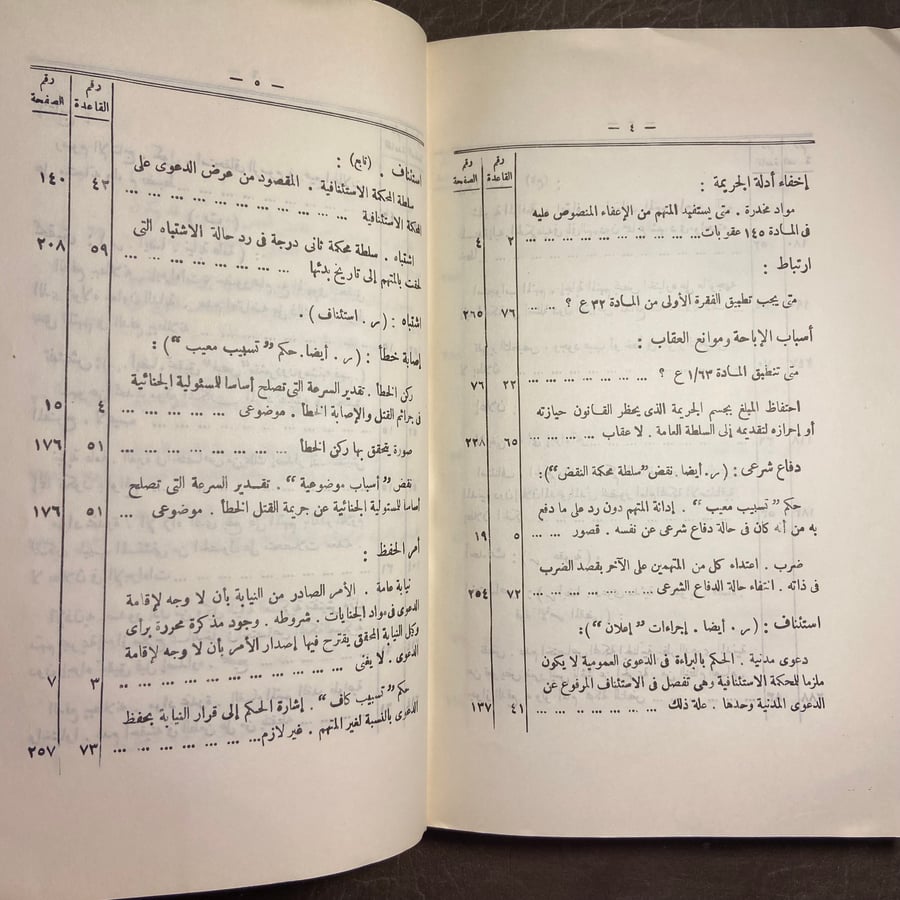 — ٤ —
رقم القاعدة
رقم الصفحة
إخفاء أدلة الجريمة :
مواد مخدرة . متى يستفيد المتهم من الإعفاء المنصوص عليه
فى المادة ١٤٥ عقوبات ... ... ... ... ... ... ... ... ٢ ٤
ارتباط :
متى يجب تطبيق الفقرة الأولى من المادة ٣٢ ع ؟ ... ... ٧٦ ٢٦٥
أسباب الإباحة وموانع العقاب :
متى تنطبق المادة ١/٦٣ ع ؟ ... ... ... ... ... ... ... ٢٢ ٧٦
احتفاظ المبلغ بجسم الجريمة الذى يحظر القانون حيازته
أو إحرازه لتقديمه إلى السلطة العامة . لا عقاب ... ... ... ... ٦٥ ٢٢٨
دفاع شرعى : (ر . أيضا . نقض "سلطة محكمة النقض") :
حكم "تسبيب معيب" . إدانة المتهم دون رد على ما دفع
به من أنه كان فى حالة دفاع شرعى عن نفسه . قصور ... ... ٥ ١٩
ضرب . اعتداء كل من المتهمين على الآخر بقصد الضرب
فى ذاته . انتفاء حالة الدفاع الشرعى ... ... ... ... ... ... ٧٢ ٢٥٤
استئناف : (ر . أيضا . إجراءات "إعلان") :
دعوى مدنية . الحكم بالبراءة فى الدعوى العمومية لا يكون
ملزما للمحكمة الاستئنافية وهى تفصل فى الاستئناف المرفوع عن
الدعوى المدنية وحدها . علة ذلك ... ... ... ... ... ... ... ٤١ ١٣٧
— ٥ —
رقم القاعدة
رقم الصفحة
استئناف . (تابع) :
سلطة المحكمة الاستئنافية . المقصود من عرض الدعوى على
المحكمة الاستئنافية ... ... ... ... ... ... ... ... ... ٤٢ ١٤٠
اشتباه . سلطة محكمة ثانى درجة فى رد حالة الاشتباه التى
لحقت بالمتهم إلى تاريخ بدئها ... ... ... ... ... ... ... ٥٩ ٢٠٨
اشتباه : (ر . استئناف) .
إصابة خطأ : (ر . أيضا . حكم "تسبيب معيب") :
ركن الخطأ . تقدير السرعة التى تصلح أساسا للمسئولية الجنائية
فى جرائم القتل والإصابة الخطأ . موضوعى ... ... ... ... ... ٤ ١٥
صورة يتحقق بها ركن الخطأ ... ... ... ... ... ... ... ... ٥١ ١٧٦
نقض "أسباب موضوعية" . تقدير السرعة التى تصلح
أساسا للمسئولية الجنائية عن جريمة القتل الخطأ . موضوعى ... ٥١ ١٧٦
أمر الحفظ :
نيابة عامة . الأمر الصادر من النيابة بأن لا وجه لإقامة
الدعوى فى مواد الجنايات . شروطه . وجود مذكرة محررة برأى
وكيل النيابة المحقق يقترح فيها إصدار الأمر بأن لا وجه لإقامة
الدعوى . لا يغنى ... ... ... ... ... ... ... ... ... ... ٣ ٧
حكم "تسبيب كاف" . إشارة الحكم إلى قرار النيابة بحفظ
الدعوى بالنسبة لغير المتهم . غير لازم ... ... ... ... ... ... ٧٣ ٢٥٧